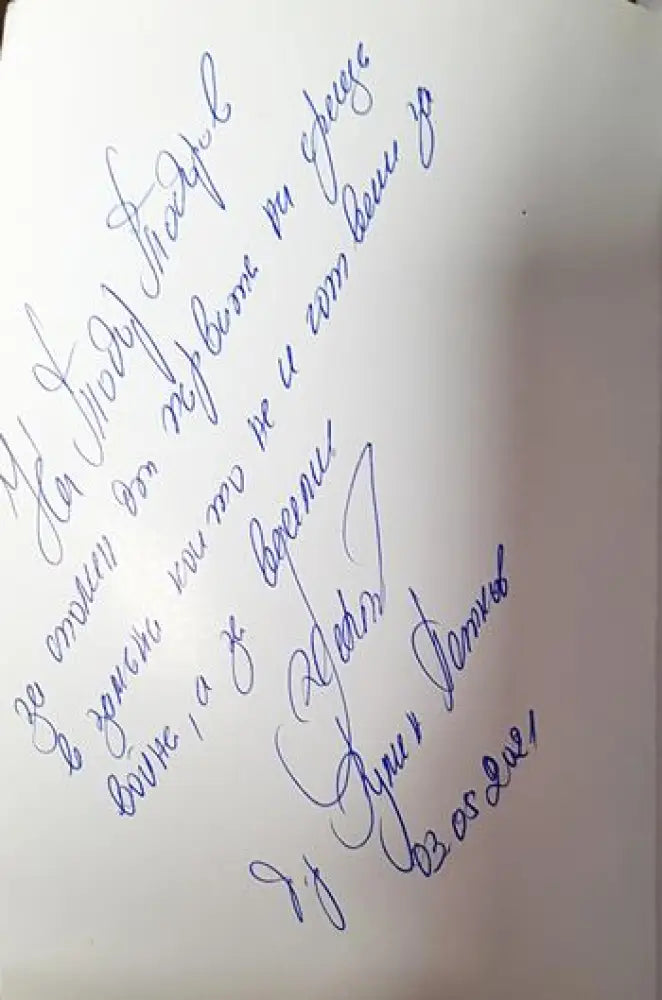 На Тодор Тодоров
за спомен от първите ни срещи
в замъка които не и готвени за
война, а за
Румен Петков
03.05.2021